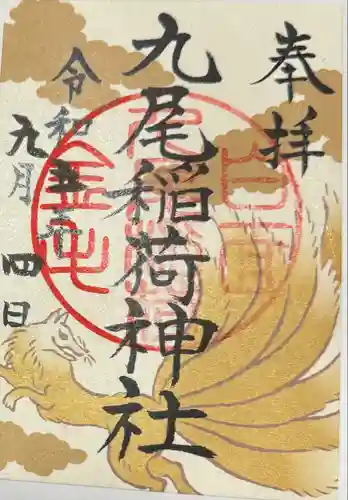 奉拝
九尾稲荷神社
令和五年
九月
四日